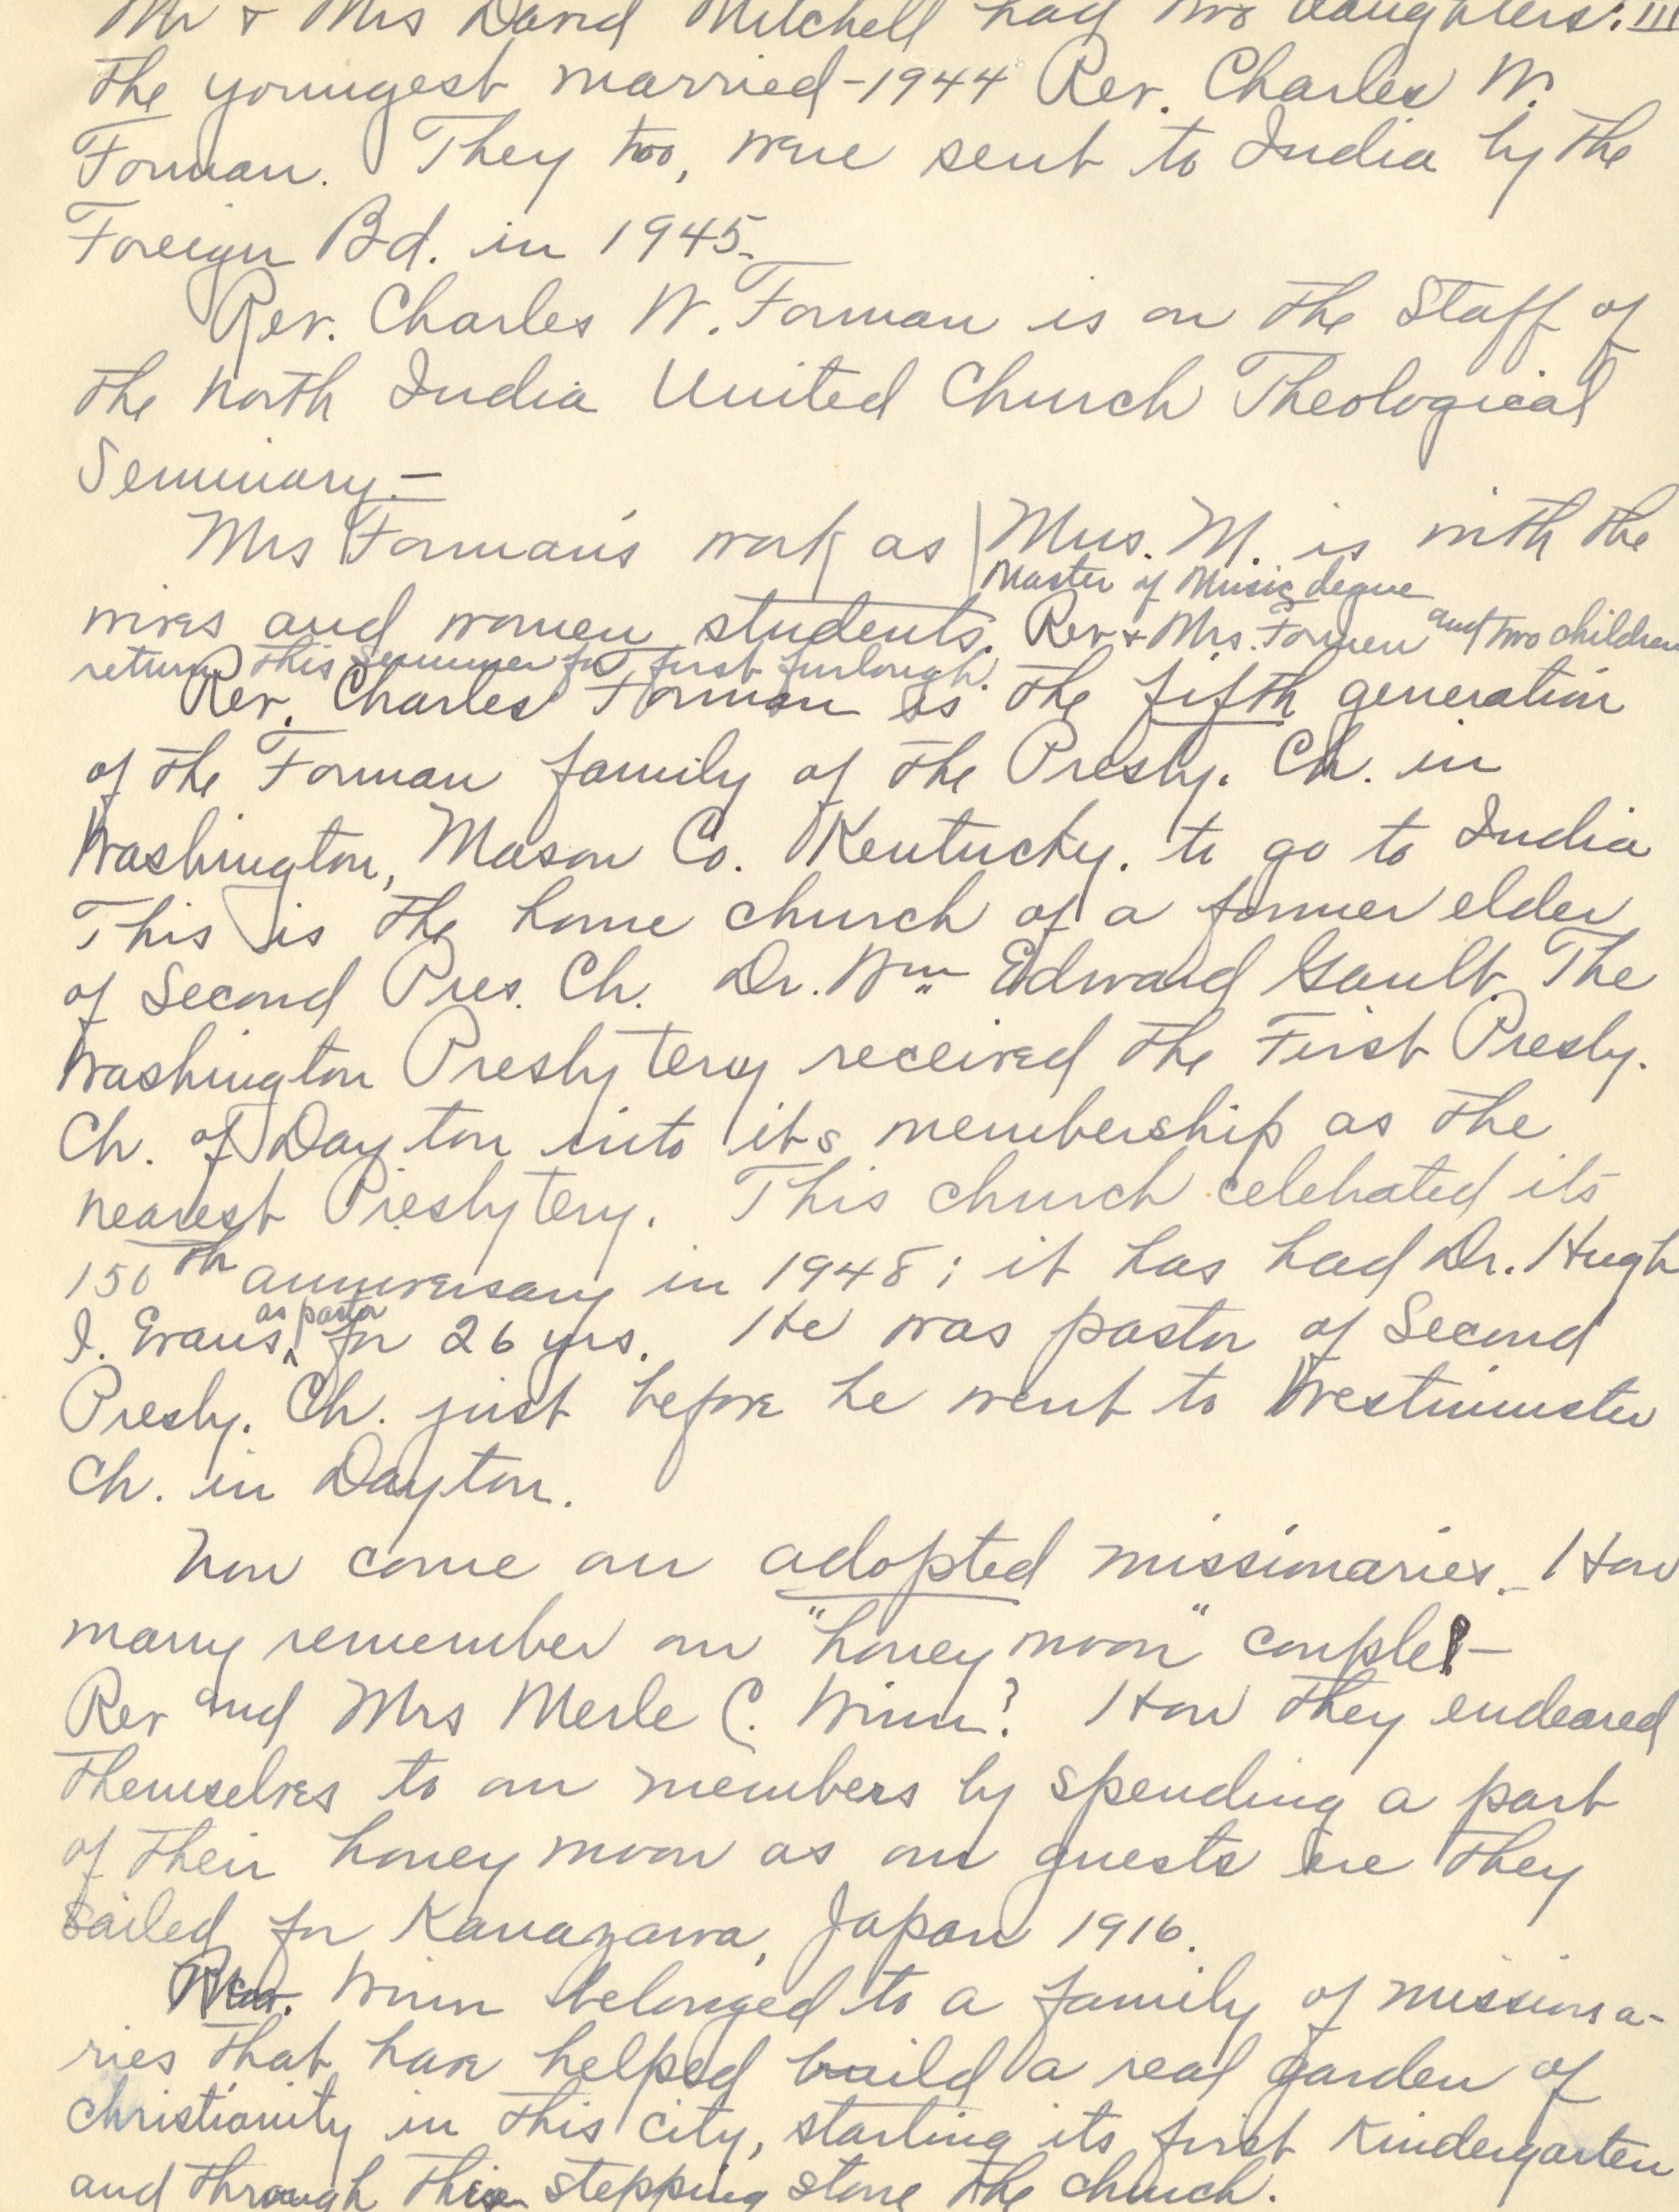 Mr & Mrs David Mitchell had two daughters: III
the youngest married - 1944 Rev. Charles W.
Forman. They too, were sent to India by the
Foreign Bd. in 1945.
Rev. Charles W. Forman is on the Staff of
the North India United Church Theological
Seminary.—
Mrs Forman's work as Mus. M. is with the
Master of Music degree
wives and women students. Rev & Mrs. Forman and two children
return this Summer for first furlough.
Rev. Charles Forman is the fifth generation
of the Forman family of the Presby. Ch. in
Washington, Mason Co. Kentucky. to go to India
This is the home church of a former elder
of Second Pres. Ch. Dr. Wm Edward Gault. The
Washington Presbytery received the First Presby.
Ch. of Dayton into its membership as the
nearest Presbytery. This church celebrated its
150th anniversary in 1948; it has had Dr. Hugh
I. Evans, as pastor for 26 yrs. He was pastor of Second
Presby. Ch. just before he went to Westminster
Ch. in Dayton.
Now come our adopted missionaries. How
many remember our "honey moon" couple -
Rev and Mrs Merle C. Winn? How they endeared
themselves to our members by spending a part
of their honey moon as our guests ere they
sailed for Kanazawa, Japan 1916.
Winn belonged to a family of missiona-
ries that have helped build a real garden of
Christianity in this city, starting its first Kindergarten
and through this stepping stone the church.